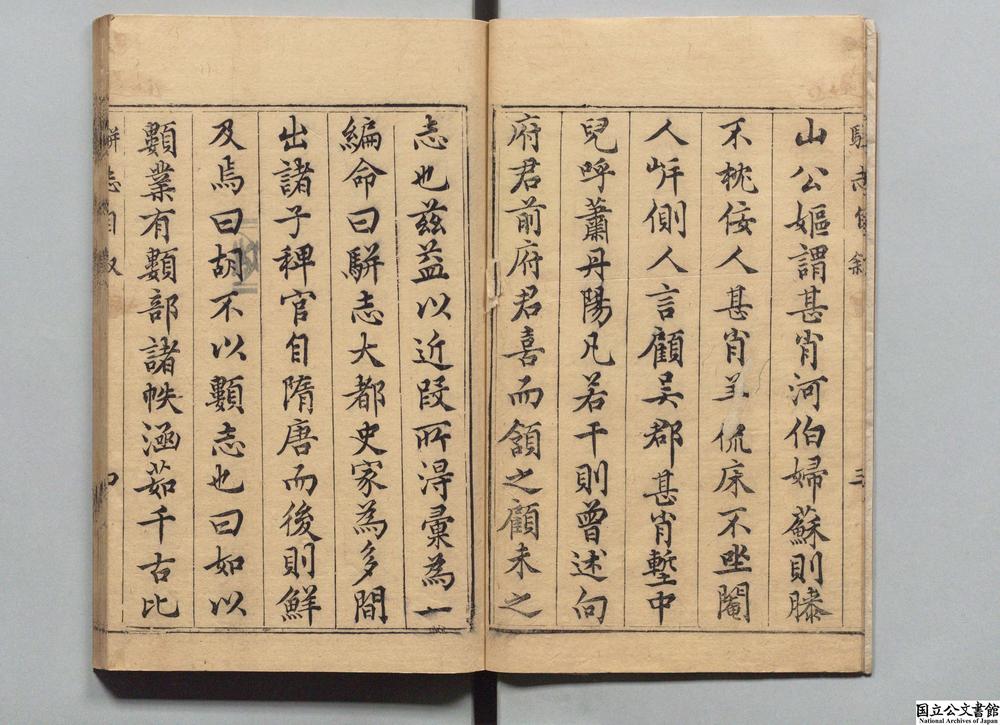 山公嫗謂甚肖河伯婦蘇則膝
不枕佞人甚肖羊侃床不坐閹
人屽側人言顧吳郡甚肖塹中
兒呼蕭丹陽凡若干則曾述向
府君前府君喜而頷之顧未之
志也茲益以近叚所淂彙為一
編命曰駢志大都史家為多間
出諸子稗官自隋唐而後則鮮
及焉曰胡不以纇志也曰如以
纇業有纇部諸帙涵茹千古比
駢志自叙
三
四
国立公文書館
National Archives of Japan